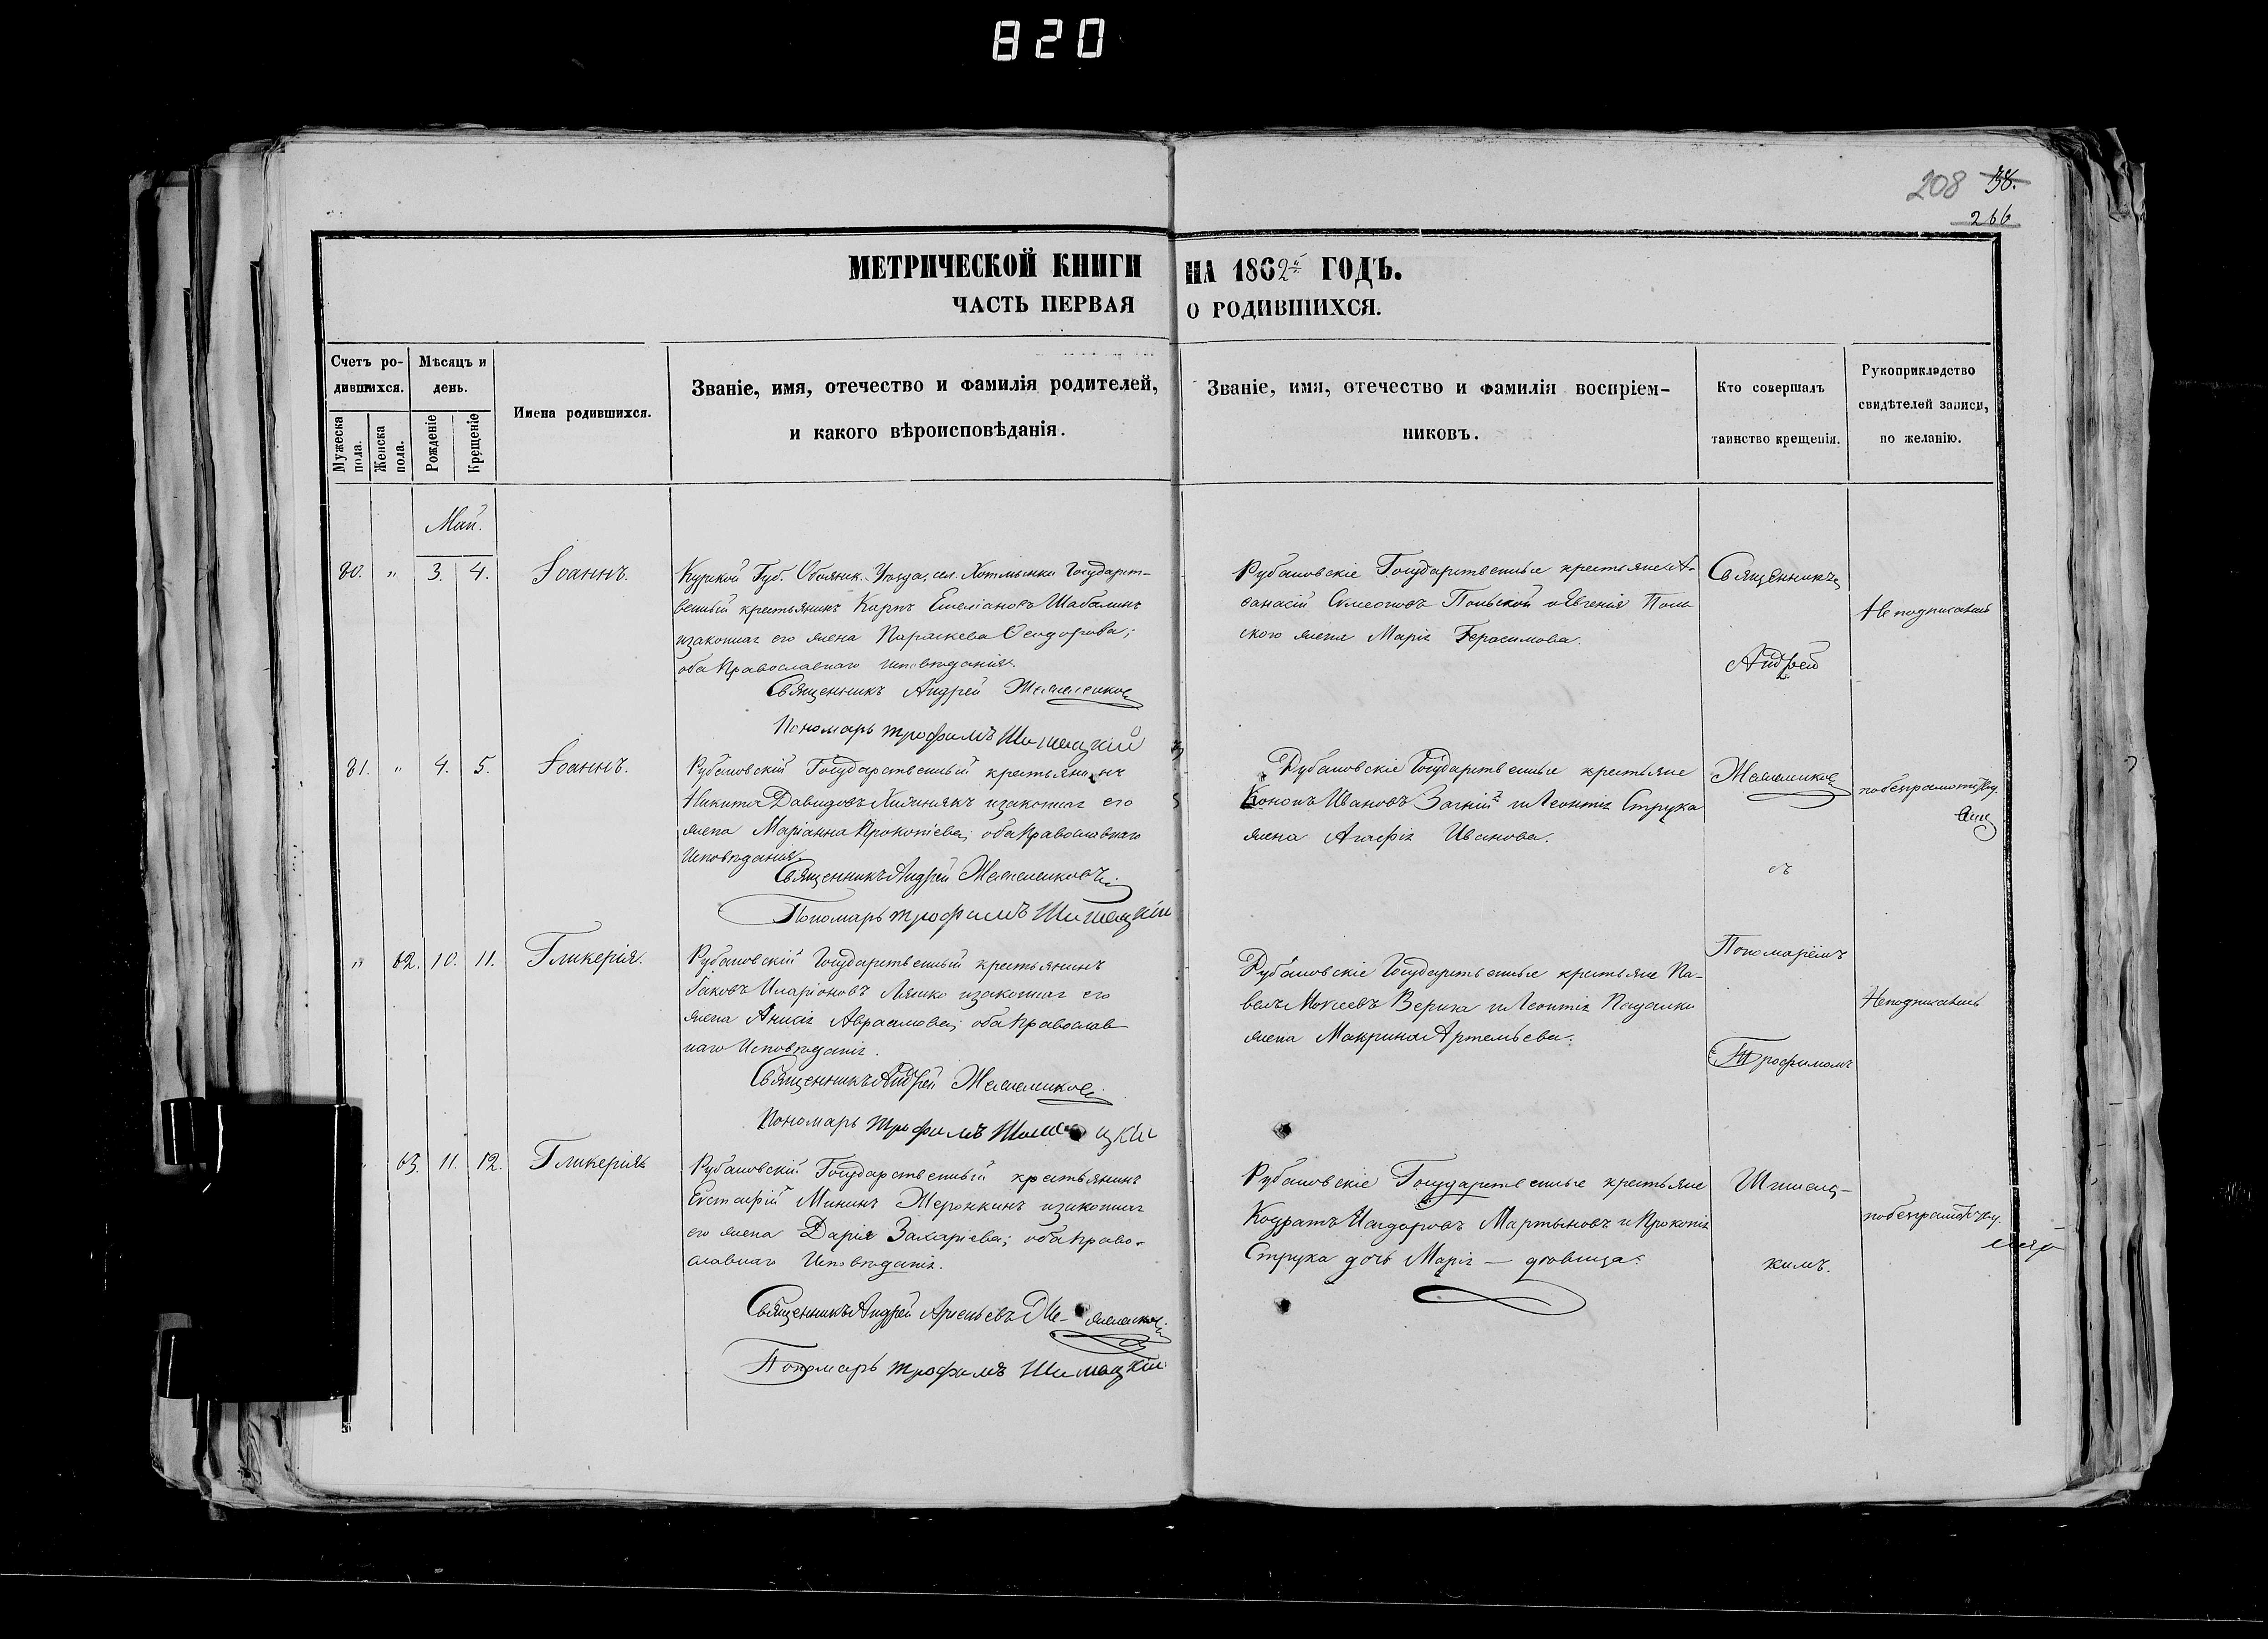 820
208 38.
266
МЕТРИЧЕСКОЙ КНИГИ НА 1862й ГОДЪ.
ЧАСТЬ ПЕРВАЯ О РОДИВШИХСЯ.
Счетъ ро-
дившихся.
Мужеска
пола.
Женска
пола.
Мѣсяцъ и
день.
Рожденіе
Крещеніе
Имена родившихся.
Званіе, имя, отечество и фамилія родителей,
и какого вѣроисповѣданія.
Званіе, имя, отечество и фамилія воспріем-
никовъ.
Кто совершалъ
таинство крещенія.
Рукоприкладство
свидѣтелей записи,
по желанію.
Май.
80. " 3. 4. Іоаннъ.
Курской Губ. Обоянск. Уѣзда, сел. Хотмынки Государст-
венный крестьянинъ Карпъ Емеліановъ Шабалинъ
изаконная его жена Параскева Ѳеодорова;
оба Православнаго исповѣданія.
Священникъ Андрей
Пономарь трофимъ
Рубановскіе Государственные крестьяне А-
ѳанасій Симеоновъ Польской и Евгенія Поль
ского жена Марія Герасимова.
Священникъ
Андрей
Неподписались
81. " 4. 5. Іоаннъ.
Рубановскій Государственный крестьянинъ
Никита Давидовъ изаконная его
жена Маріанна Прокопіева; оба Православнаго
Исповѣданія.
Священникъ Андрей
Пономарь трофимъ
Рубановскіе Государственные крестьяне
Кононъ Ивановъ Загній и Леонтія Струка
жена Агафія Иванова.
съ
" 62. 10. 11. Гликерія.
Рубановскій Государственный крестьянинъ
Іаковъ Иларіоновъ Ляшко изаконная его
жена Анисія Авраамова; оба Православ
наго Исповѣданія.
Священникъ Андрей
Пономарь трофимъ
Рубановскіе Государственные крестьяне Па-
велъ Моисеевъ Верига и Леонтія Пацалки
жена Макрина Артемьева.
Пономаремъ
Трофимомъ
Неподписались
63. 11. 12. Гликерія
Рубановскій Государственный крестьянинъ
Евстафій Мининъ Жеронкинъ изаконная
его жена Дарія Захаріева; оба Право-
славнаго Исповѣданія.
Священникъ Андрей Арсеньевъ
Пономарь трофимъ
Рубановскіе Государственные крестьяне
Кодратъ Исидоровъ Мартыновъ и Прокопія
Струка дочь Марія — дѣвица.
кимъ.